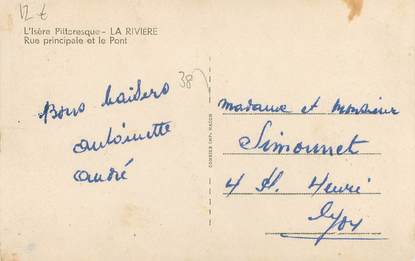 12 €
L'Isère Pittoresque - LA RIVIERE
Rue principale et le Pont
38
Bons baisers
antoinette
andré
COMBIER IMP. MACON
madame et monsieur
Simonnet
4 Henri
Lyon